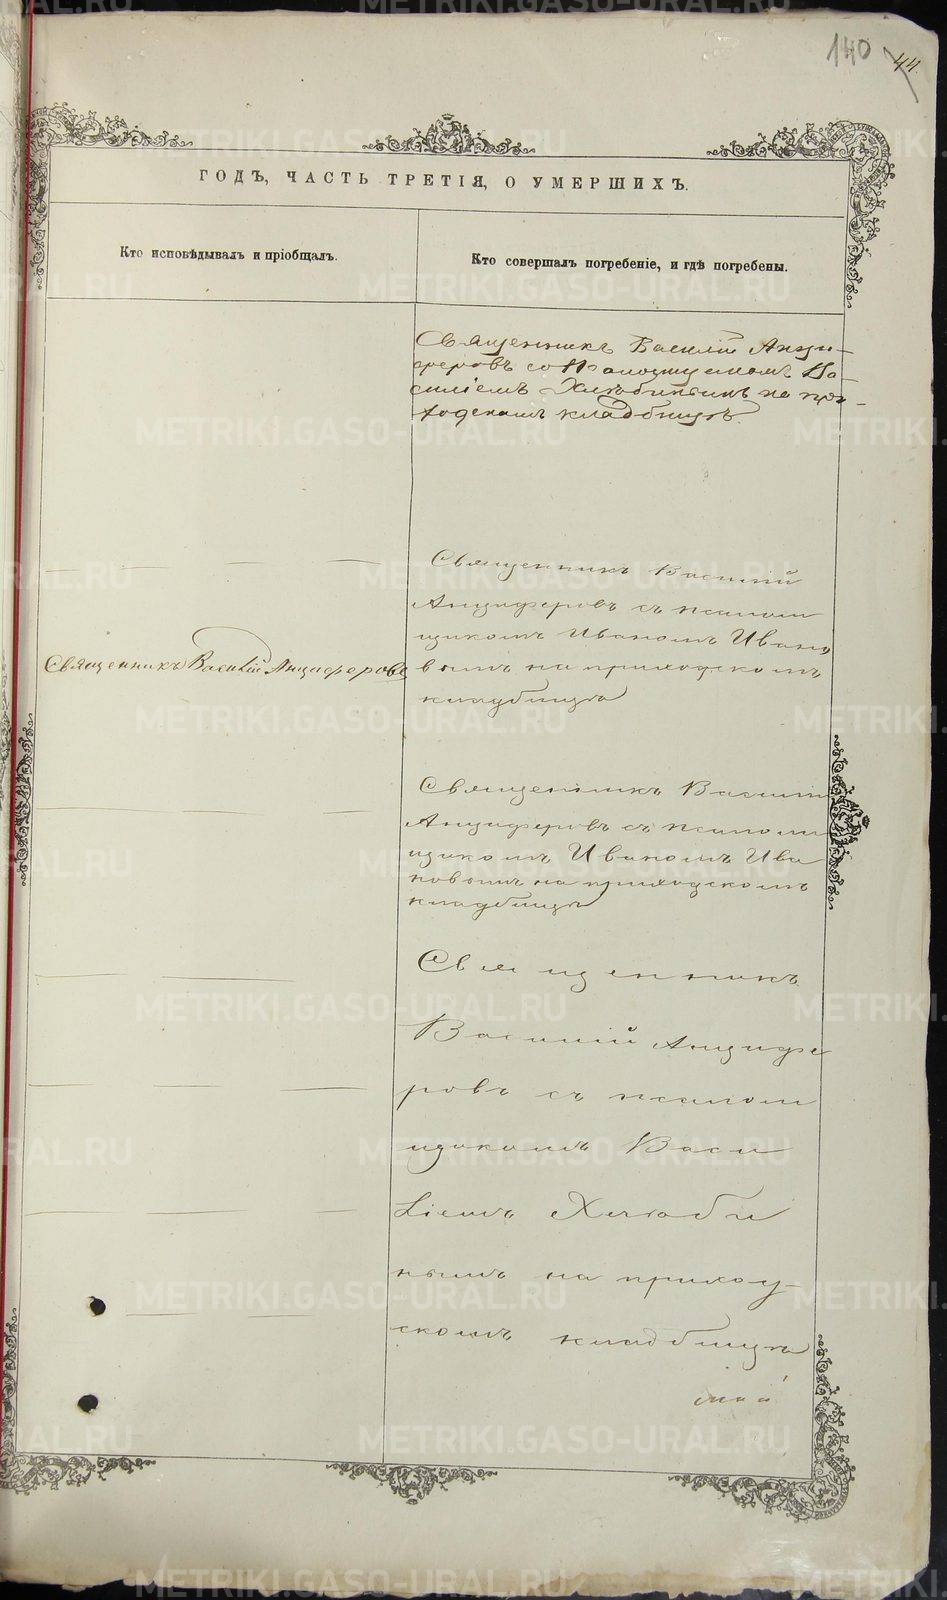 140
44
ГОДЪ, ЧАСТЬ ТРЕТІЯ, О УМЕРШИХЪ.
Кто исповѣдывалъ и пріобщалъ.
Кто совершалъ погребеніе, и гдѣ погребены.
Священникъ Василій Анци-
феровъ со Псаломщикомъ Ва-
силіемъ Хлѣбинымъ на при-
ходскомъ кладбищѣ.
Священникъ Василій
Анциферовъ съ псалом
щикомъ Иваномъ Ивано
Священникъ Василій Анциферовъ
вымъ на приходскомъ
кладбищѣ
Священникъ Василій
Анциферовъ съ псалом
щикомъ Иваномъ Ива
новымъ на приходскомъ
кладбищѣ
Священникъ
Василій Анцифе
ровъ съ псалом
щикомъ Васи
ліемъ Хлѣби
нымъ на приход-
скомъ кладбищѣ
METRIKI.GASO-URAL.RU